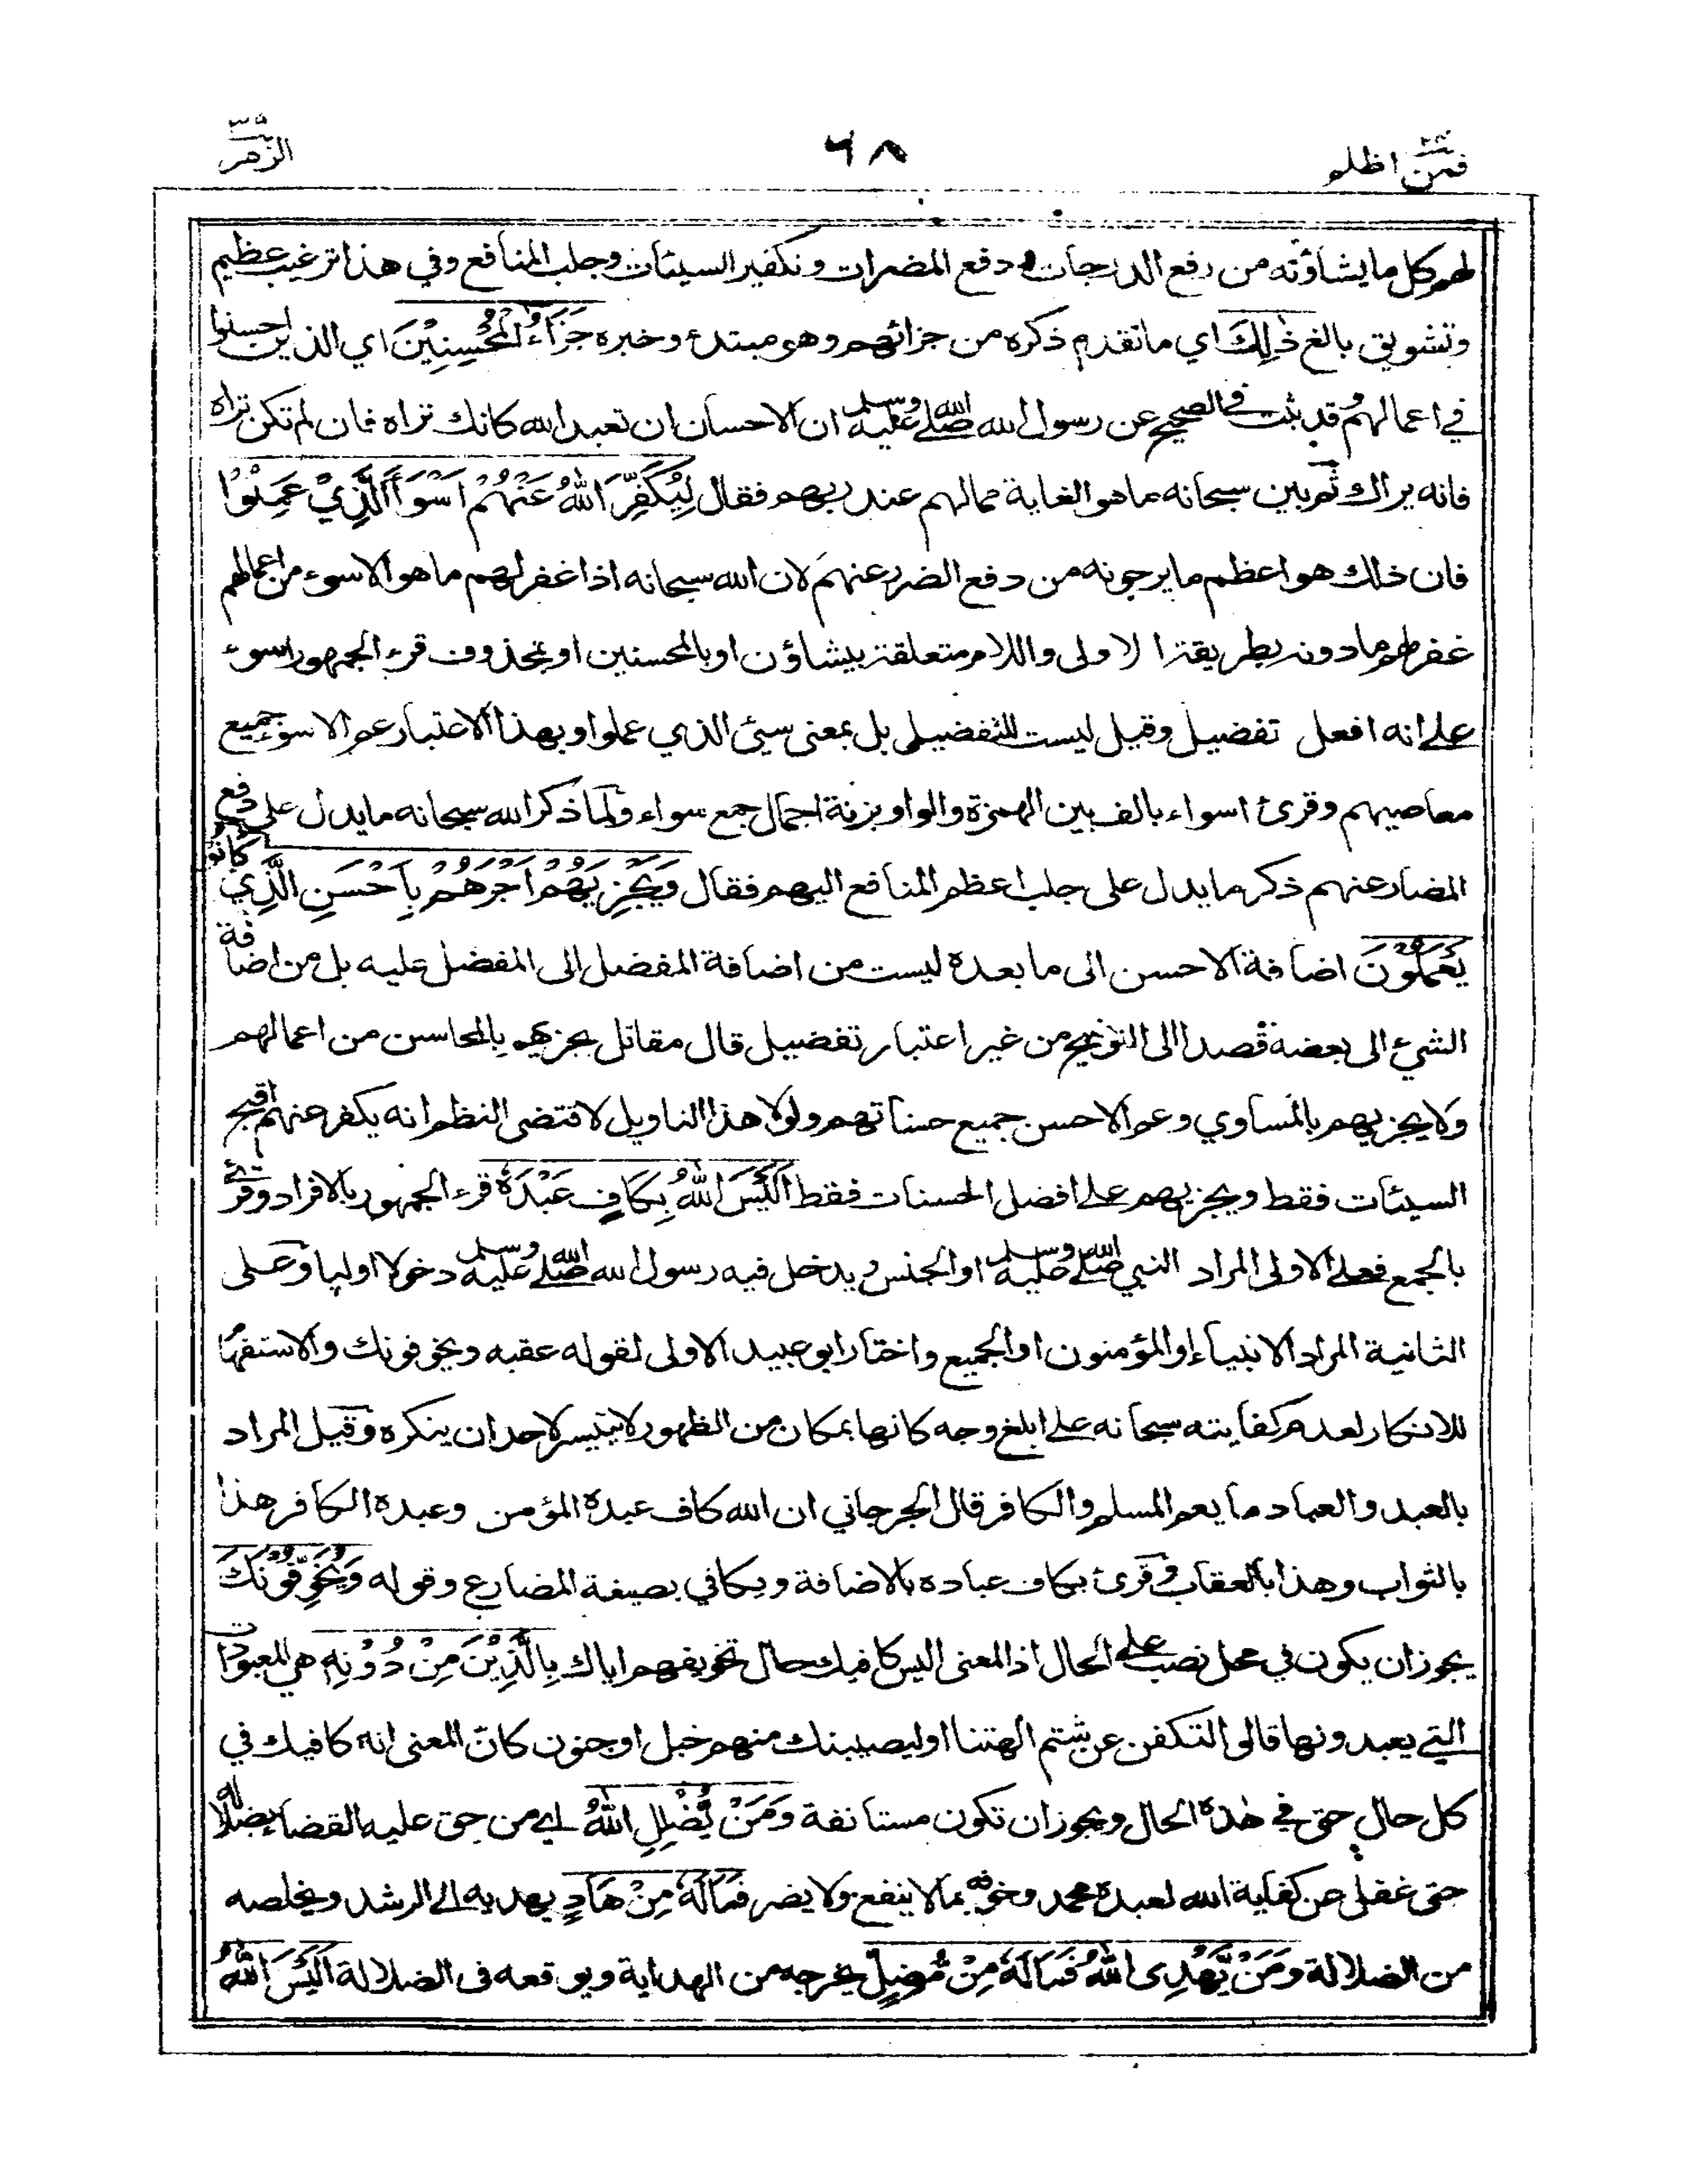 فمن اظلم ٦٨ الزمر
لهم كل ما يشاؤنه من رفع الدرجات و دفع المضرات و تكفير السيئات وجلب المنافع وفي هذا ترغيب عظيم
وتشويق بالغ ذٰلِكَ اي ما تقدم ذكره من جزائهم وهو مبتدء وخبره جَزَاءُ الْمُحْسِنِيْنَ اي الذين احسنوا
في اعمالهم وقد ثبت في الصحيح عن رسول الله صلى الله عليه وسلم ان الاحسان ان تعبد الله كانك تراه فان لم تكن تراه
فانه يراك ثم بين سبحانه ما هو الغاية مما لهم عند ربهم فقال لِيُكَفِّرَ اللّٰهُ عَنْهُمْ اَسْوَأَ الَّذِيْ عَمِلُوْا
فان ذلك هو اعظم ما يرجونه من دفع الضرر عنهم لان الله سبحانه اذا غفر لهم ما هو الاسوء من اعمالهم
غفر لهم ما دونه بطريقة الاولى واللام متعلقة بيشاؤن او بالمحسنين او بمحذوف قرء الجمهور اسوء
على انه افعل تفضيل وقيل ليست للتفضيل بل بمعنى سيئ الذي عملوا وبهذا الاعتبار عم الاسوء جميع
معاصيهم وقرئ اسواء بالف بين الهمزة والواو بزنة اجمال جمع سواء ولما ذكر الله سبحانه ما يدل على دفع
المضار عنهم ذكر ما يدل على جلب اعظم المنافع اليهم فقال وَيَجْزِيَهُمْ اَجْرَهُمْ بِاَحْسَنِ الَّذِيْ كَانُوْا
يَعْمَلُوْنَ اضافة الاحسن الى ما بعده ليست من اضافة المفضل الى المفضل عليه بل من اضافة
الشيء الى بعضه قصدا الى التوضيح من غير اعتبار تفضيل قال مقاتل يجزيهم بالمحاسن من اعمالهم
ولا يجزيهم بالمساوي وعم الاحسن جميع حسناتهم ولولا هذا التاويل لاقتضى النظم انه يكفر عنهم اقبح
السيئات فقط ويجزيهم على افضل الحسنات فقط اَلَيْسَ اللّٰهُ بِكَافٍ عَبْدَهٗ قرء الجمهور بالافراد وقرئ
بالجمع فعلى الاولى المراد النبي صلى الله عليه وسلم او الجنس ويدخل فيه رسول الله صلى الله عليه وسلم دخولا اوليا وعلى
الثانية المراد الانبياء او المؤمنون او الجميع واختار ابو عبيد الاولى لقوله عقبه ويخوفونك والاستفهام
للانكار لعدم كفايته سبحانه على ابلغ وجه كانها بمكان من الظهور لا يتيسر لاحد ان ينكره وقيل المراد
بالعبد والعباد ما يعم المسلم والكافر قال الجرجاني ان الله كاف عبده المؤمن وعبده الكافر هذا
بالثواب وهذا بالعقاب وقرئ بكاف عباده بالاضافة ويكافي بصيغة المضارع وقوله وَيُخَوِّفُوْنَكَ
يجوز ان يكون في محل نصب على الحال اذ المعنى اليس كافيك حال تخويفهم اياك بِالَّذِيْنَ مِنْ دُوْنِهٖ هي المعبودات
التي يعبدونها قالوا لتكفن عن شتم الهتنا او ليصيبنك منهم خبل او جنون كان المعنى انه كافيك في
كل حال حتى في هذه الحال ويجوز ان تكون مستانفة وَمَنْ يُّضْلِلِ اللّٰهُ اي من حق عليه القضاء بضلاله
حتى غفل عن كفاية الله لعبده محمد وخوفه بما لا ينفع ولا يضر فَمَا لَهٗ مِنْ هَادٍ يهديه الى الرشد ويخلصه
من الضلالة وَمَنْ يَّهْدِى اللّٰهُ فَمَا لَهٗ مِنْ مُّضِلٍّ يخرجه من الهداية ويوقعه في الضلالة اَلَيْسَ اللّٰهُ